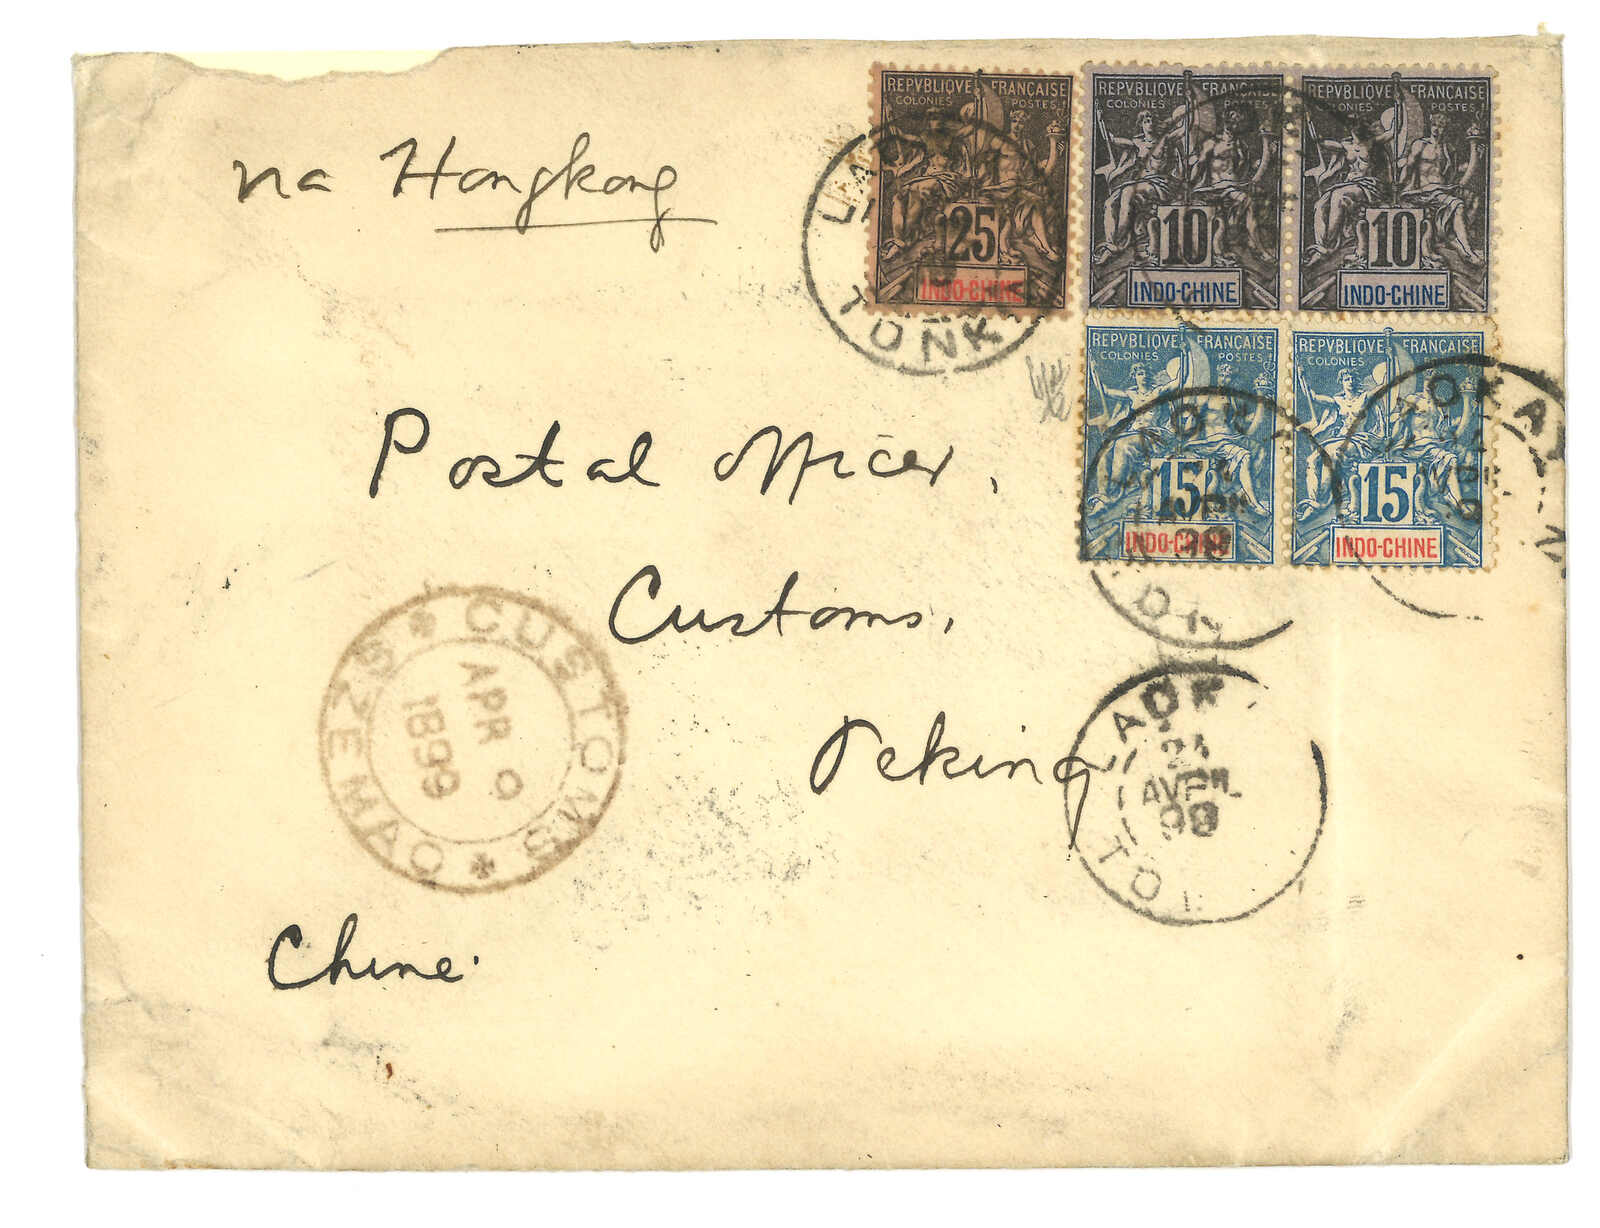 via Hongkong
REPVBLIQVE FRANÇAISE
COLONIES POSTES
25
INDO-CHINE
REPVBLIQVE FRANÇAISE
COLONIES POSTES
10
INDO-CHINE
REPVBLIQVE FRANÇAISE
COLONIES POSTES
10
INDO-CHINE
REPVBLIQVE FRANÇAISE
COLONIES POSTES
15
INDO-CHINE
REPVBLIQVE FRANÇAISE
COLONIES POSTES
15
INDO-CHINE
Postal Officer,
Customs,
Peking
Chine.
CUSTOMS
SZEMAO
APR 9
1899